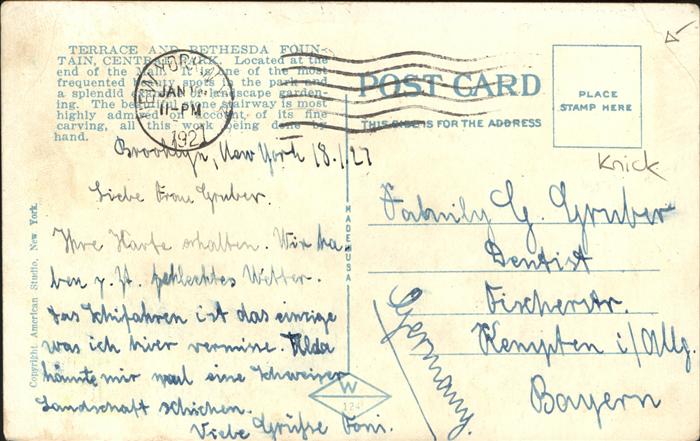 TERRACE AND BETHESDA FOUN-
TAIN, CENTRAL PARK. Located at the
end of the Mall. It is one of the most
frequented beauty spots in the park and
a splendid of landscape garden-
ing. The beautiful stairway is most
highly admired on account of its fine
carving, all this work being done by
hand.
JAN
11-PM
192
POST CARD
THIS SIDE IS FOR THE ADDRESS
PLACE
STAMP HERE
Knick
Brooklyn, New York 18.1.27
Liebe Frau Gruber.
Ihre Karte erhalten. Wir ha-
ben z. Zt. schlechtes Wetter.
Das Schifahren ist das einzige
was ich hier vermisse.
könnte mir mal eine Schweizer
Landschaft schicken.
Viele Grüße Toni.
MADE IN USA
W
124
Copyright, American Studio, New York.
Family G. Gruber
Dentist
Fischerstr.
Kempten i/Allg.
Bayern
Germany.